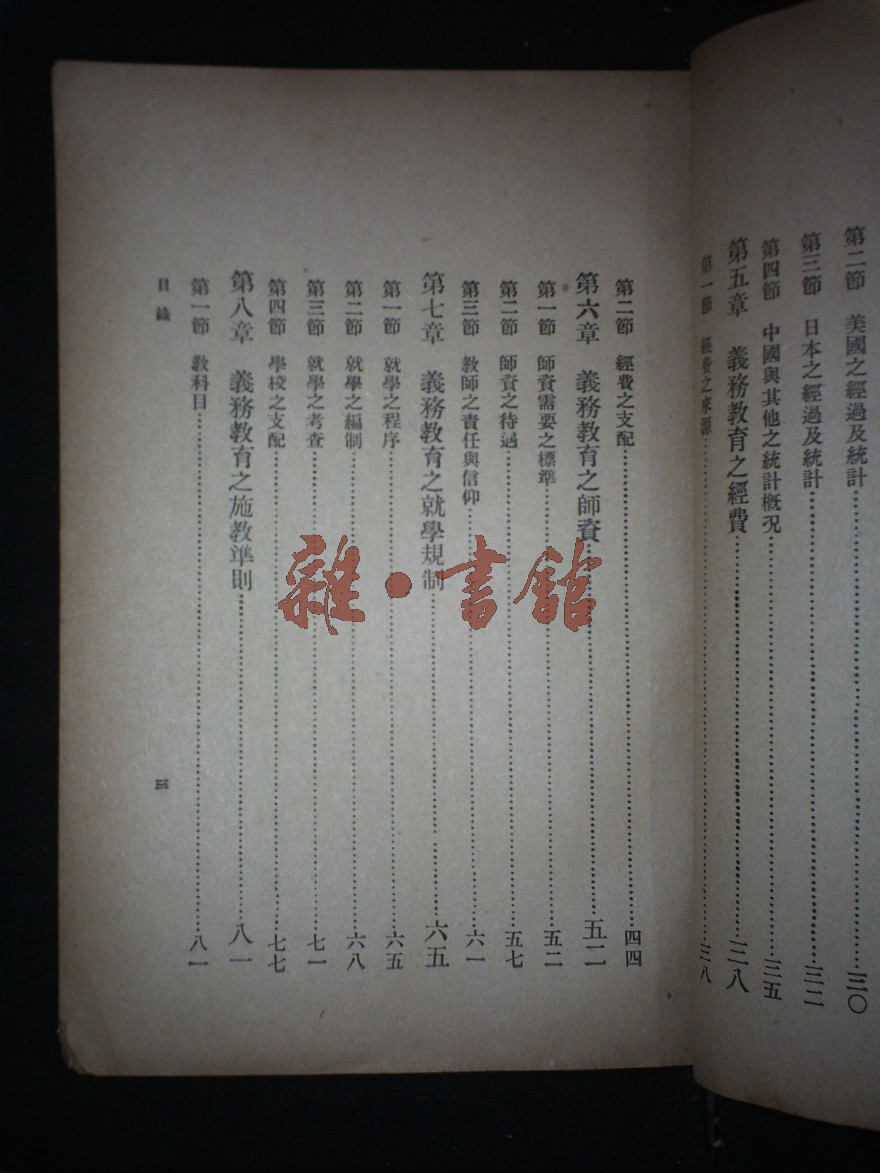 第二節 美國之經過及統計………三〇
第三節 日本之經過及統計………三二
第四節 中國與其他之統計概況………三五
第五章 義務教育之經費………三八
第一節 經費之來源………三八
第二節 經費之支配………四四
第六章 義務教育之師資………五二
第一節 師資需要之標準………五二
第二節 師資之待遇………五七
第三節 教師之責任與信仰………六一
第七章 義務教育之就學規制………六五
第一節 就學之程序………六五
第二節 就學之編制………六八
第三節 就學之考查………七一
第四節 學校之支配………七七
第八章 義務教育之施教準則………八一
第一節 教科目………八一
目錄
三
雜·書館